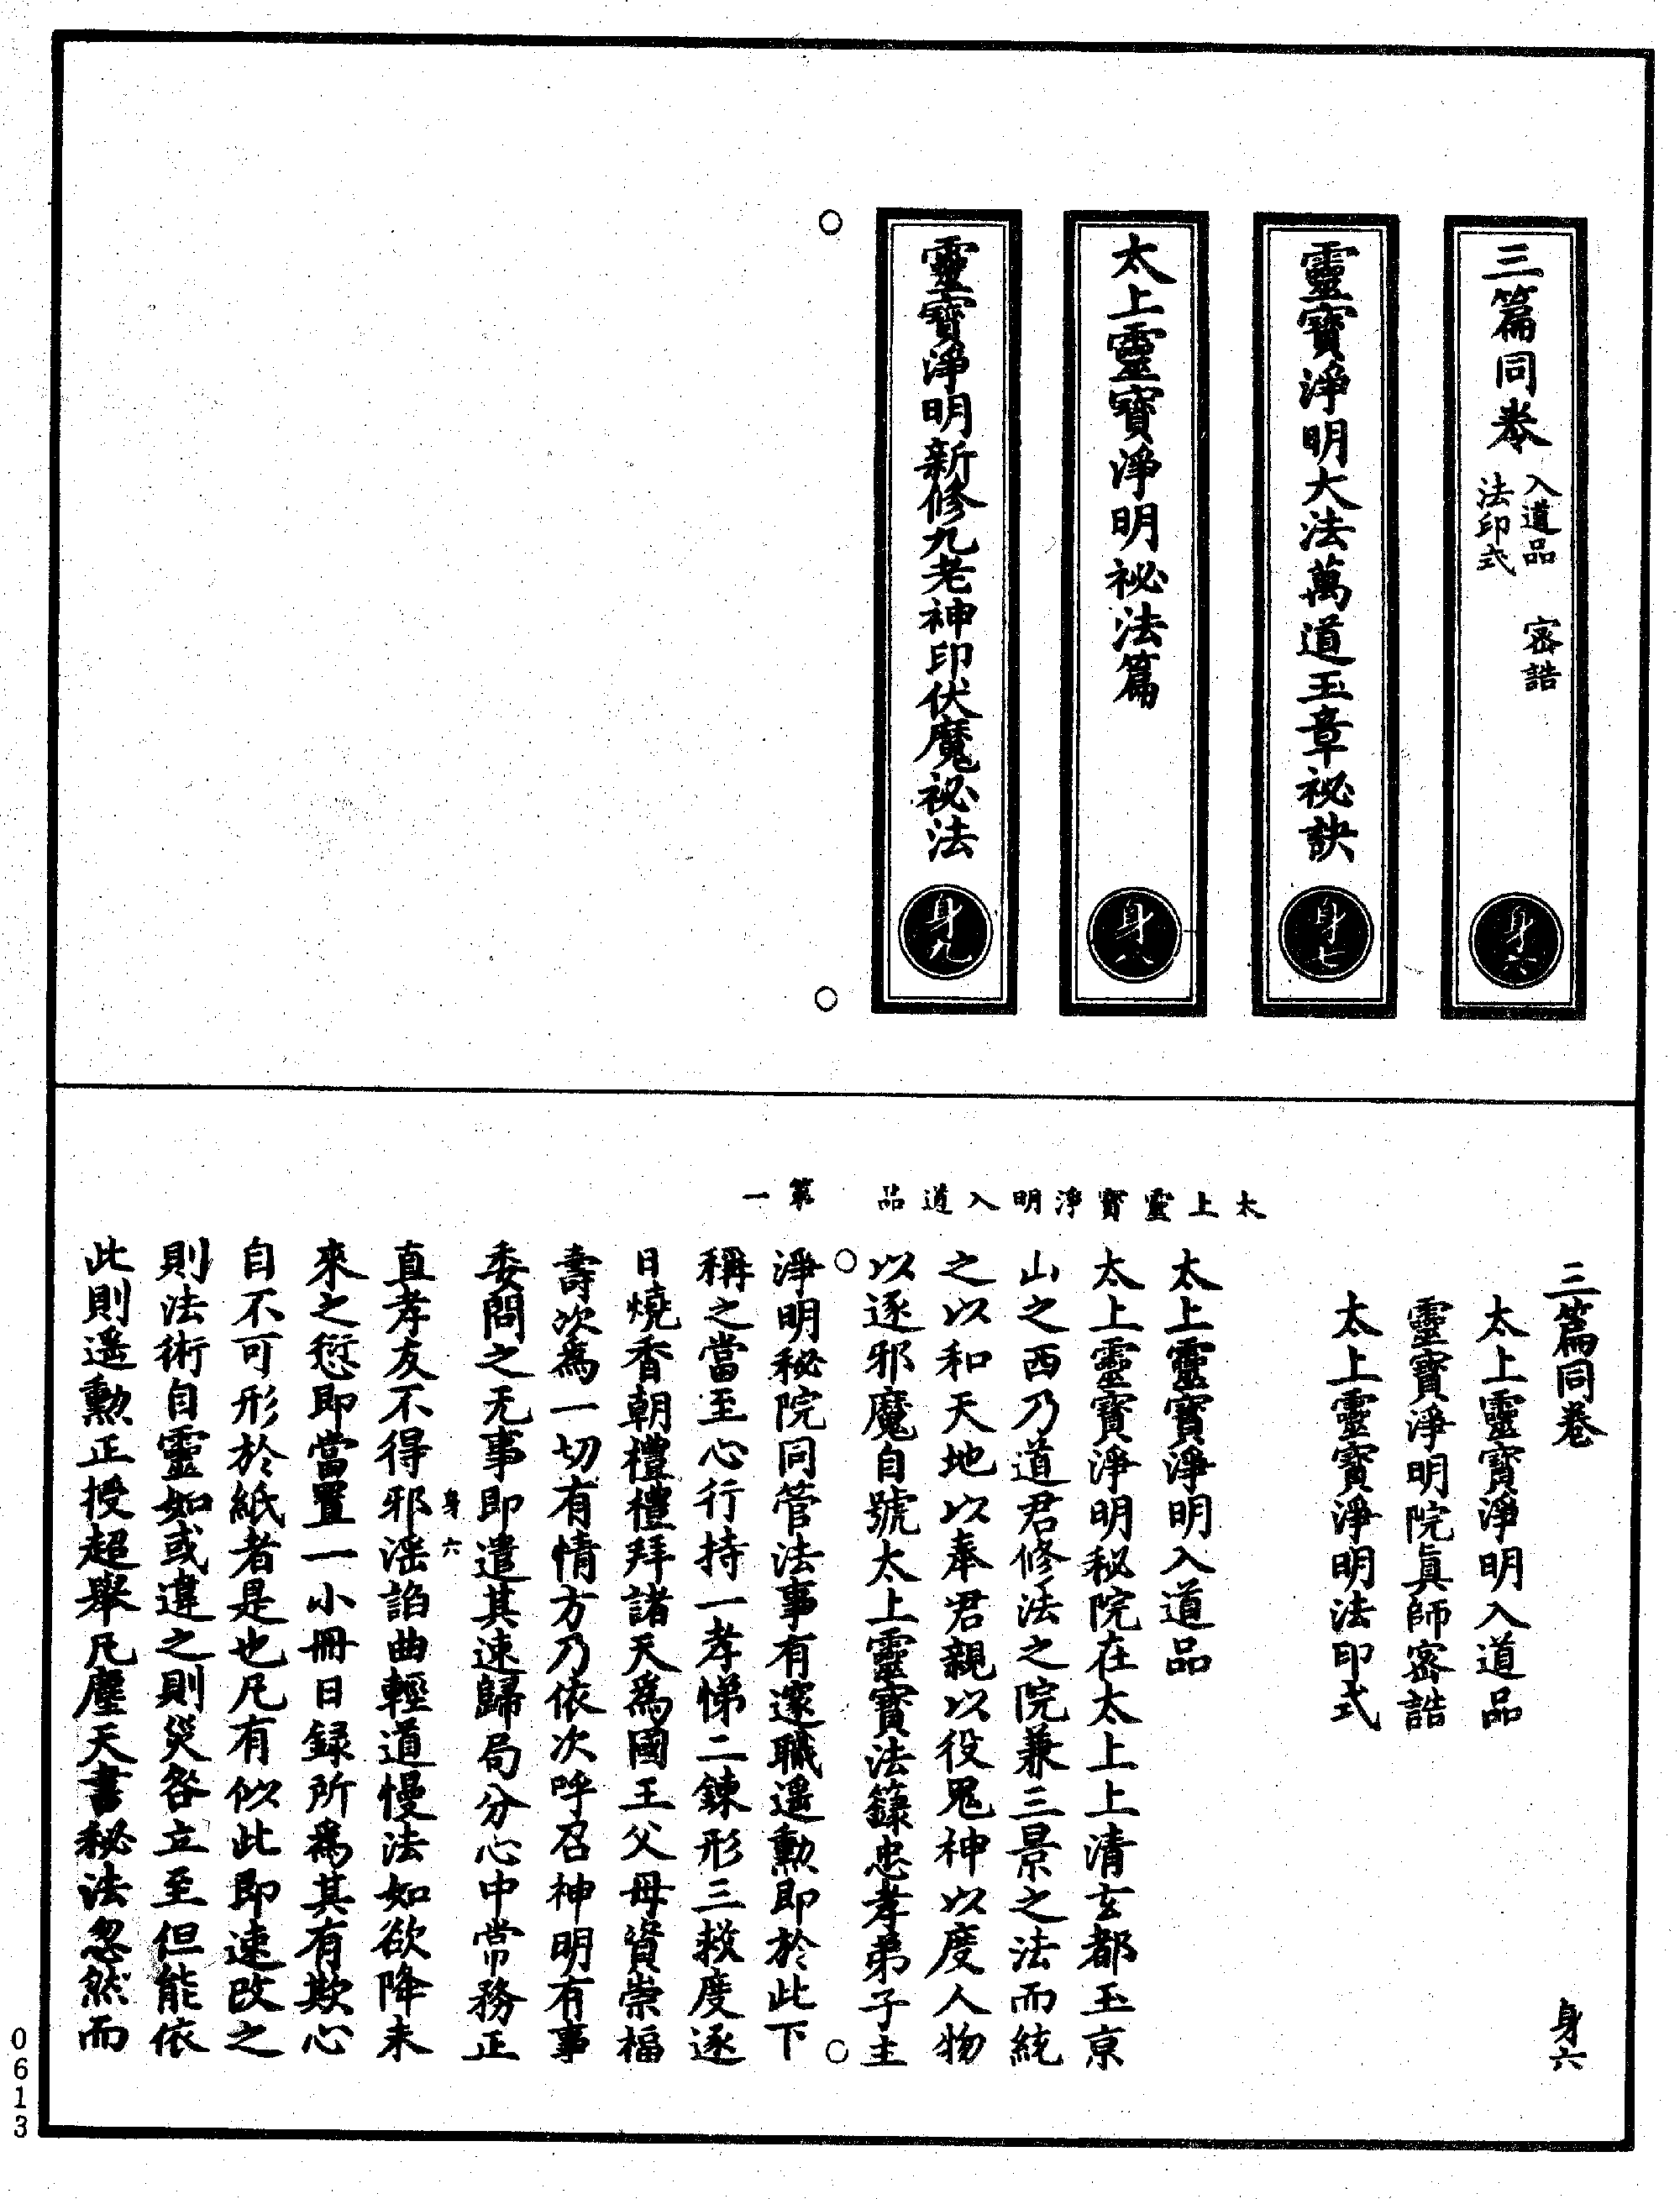 三篇同卷
入道品　密誥
法印式
身六
靈寶淨明大法萬道玉章祕訣
身七
太上靈寶淨明祕法篇
身八
靈寶淨明新修九老神印伏魔祕法
身九
三篇同卷
身六
太上靈寶淨明入道品
靈寶淨明院眞師密誥
太上靈寶淨明法印式
太上靈寶淨明入道品　第一
太上靈寶淨明入道品
太上靈寶淨明秘院在太上上清玄都玉京
山之西乃道君修法之院兼三景之法而統
之以和天地以奉君親以役鬼神以度人物
以逐邪魔自號太上靈寶法籙忠孝弟子主
淨明秘院同管法事有邃職遥勲即於此下
稱之當至心行持一孝悌二鍊形三救度逐
日燒香朝禮禮拜諸天爲國王父母資崇福
壽次爲一切有情方乃依次呼召神明有事
委問之无事即遣其速歸局分心中常務正
身六
直孝友不得邪滛諂曲輕道慢法如欲降未
來之愆即當置一小冊日録所爲其有欺心
自不可形於紙者是也凡有似此即速改之
則法術自靈如或違之則災咎立至但能依
此則遥勲正授超舉凡塵天書秘法忽然而
0613